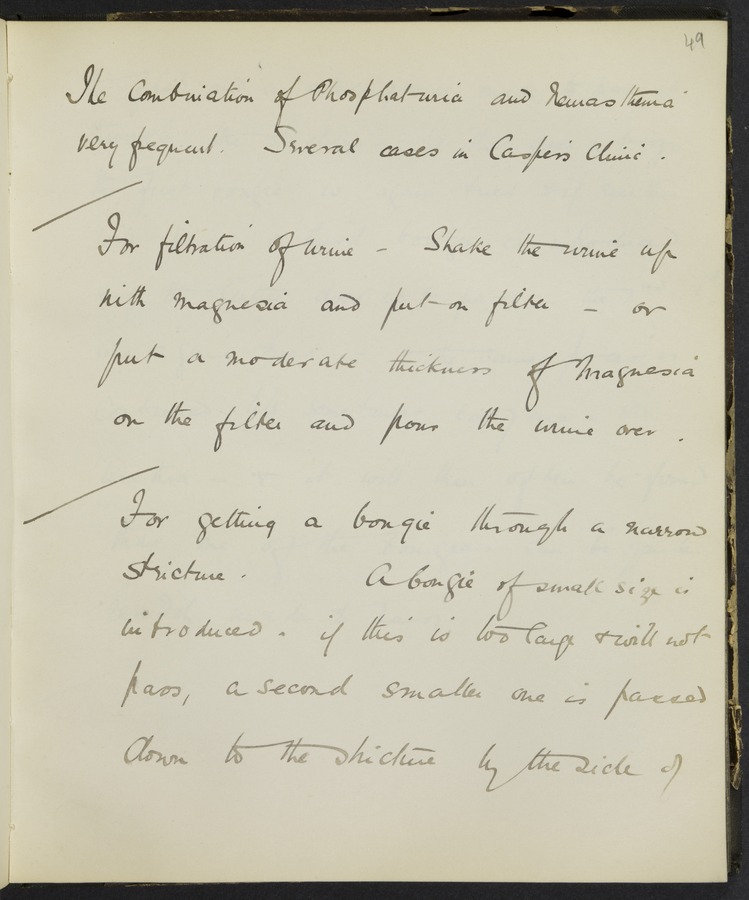 49
The Combination of Phosphaturia and Neurasthenia
very frequent. Several cases in Casper's Clinic.
For filtration of urine - Shake the urine up
with magnesia and put on filter - or
put a moderate thickness of Magnesia
on the filter and pour the urine over.
For getting a bougie through a narrow
stricture. A bougie of small size is
introduced. if this is too large & will not
pass, a second smaller one is passed
down to the stricture by the side of